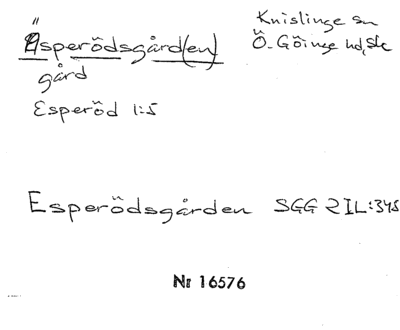 Äsperödsgård(en)
gård
Esperöd 1:5
Knislinge sn
Ö. Göinge hd, Sk
Esperödsgården SGG 2 IL:345
Nr 16576